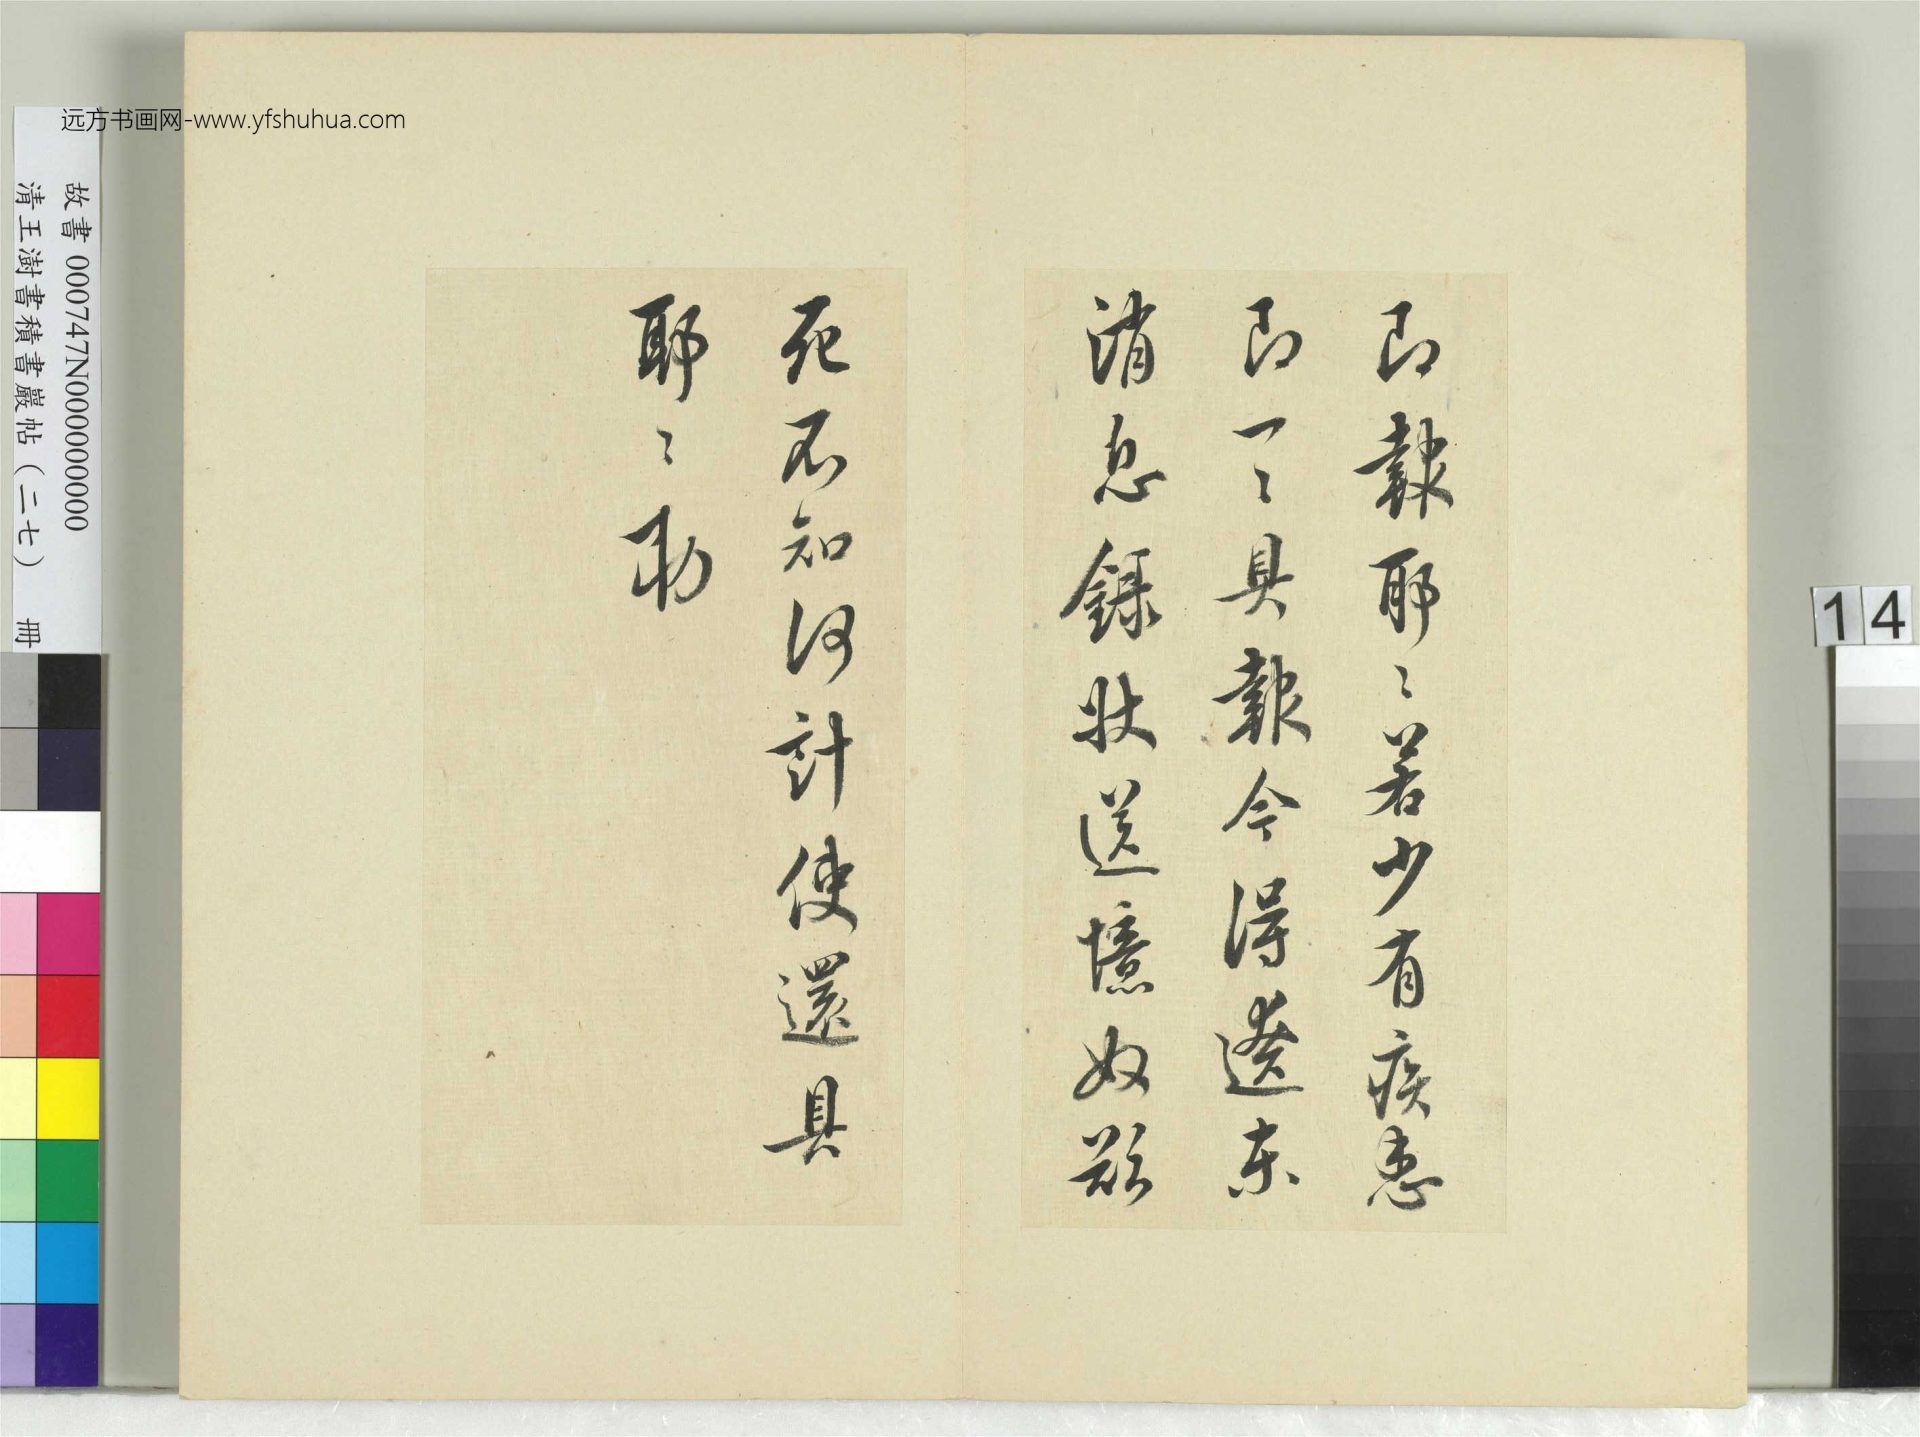 即報耶〻若少有疾患
即一〻具報今得遼東
消息錄狀送憶奴欲
死不知何計使還具
耶〻勅
远方书画网-www.yfshuhua.com
故書 000747N000000000
清王澍書積書巖帖（二七） 冊
14